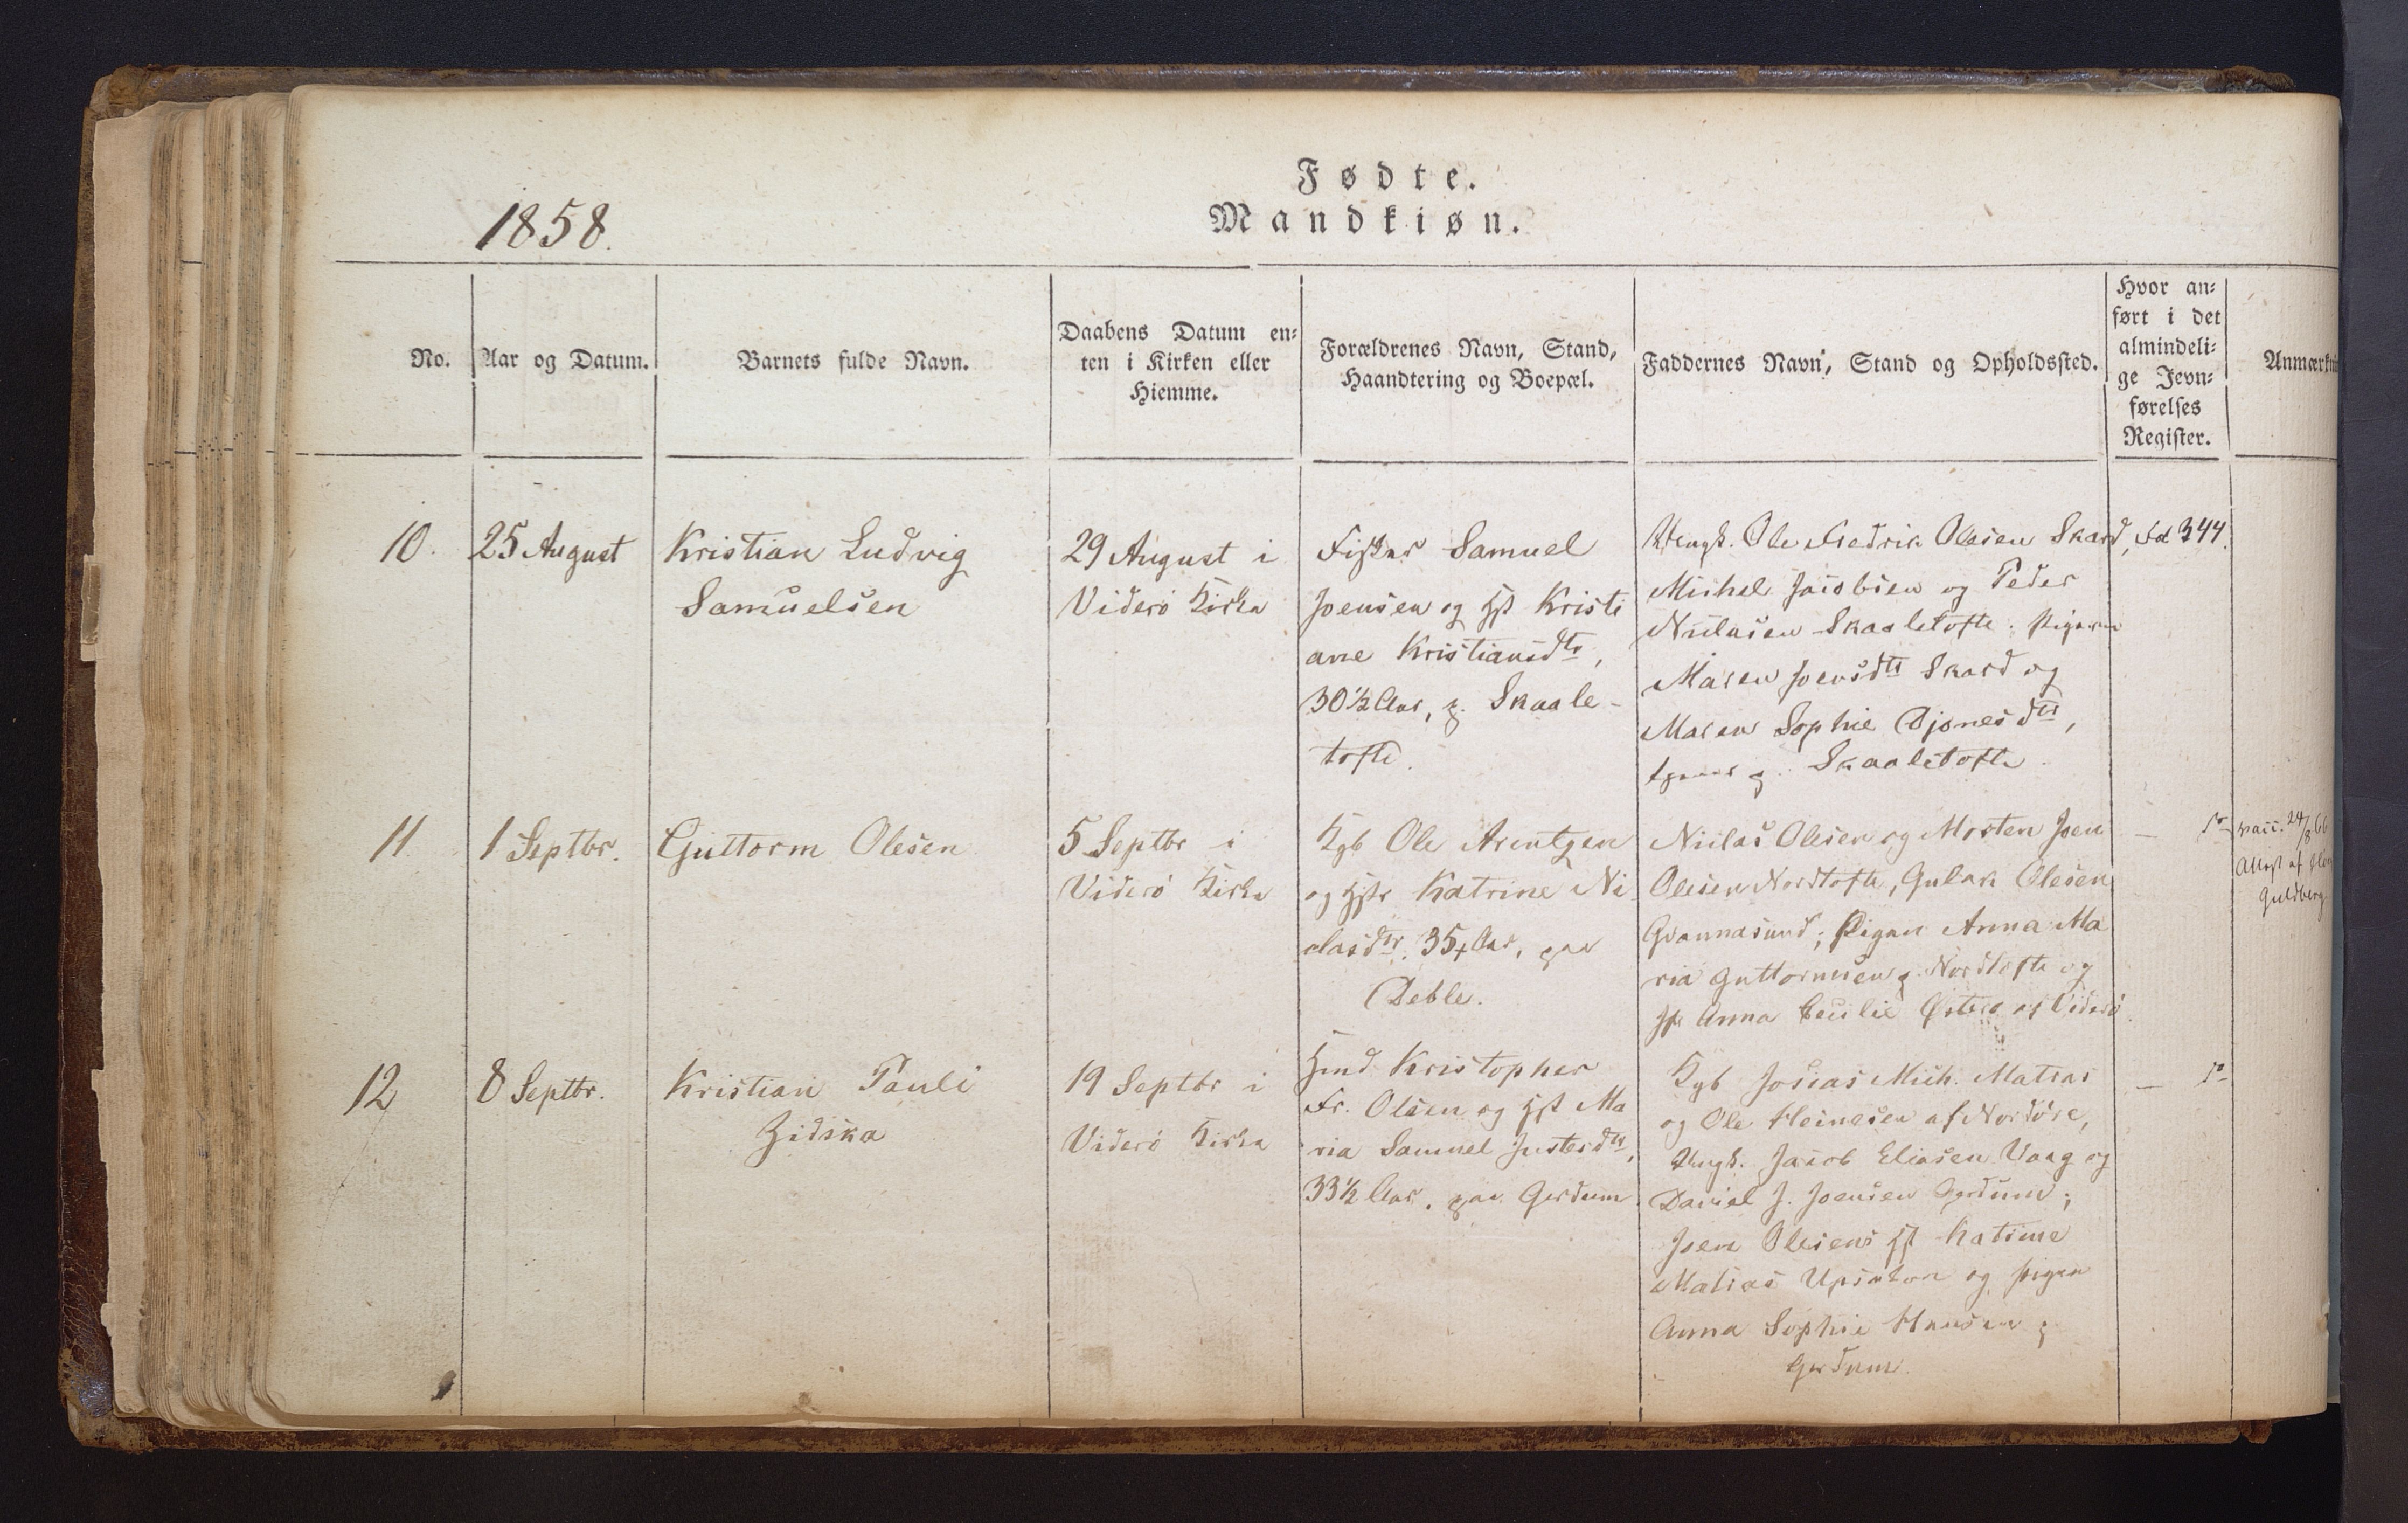 Fødte.
Mandkiøn.
1858.
No.
Aar og Datum.
Barnets fulde Navn.
Daabens Datum en=
ten i Kirken eller
Hiemme.
Forældrenes Navn, Stand,
Haandtering og Boepæl.
Faddernes Navn, Stand og Opholdssted.
Hvor an=
ført i det
almindeli=
ge Jevn=
førelses
Register.
Anmærkni
10.
25 August
Kristian Ludvig
Samuelsen
29 August i
Viderö Kirke
Fisker Samuel
Joensen og Hst Kristi
ane Kristiansdtr,
30½ Aar, p. Skaale-
tofte.
Ole Fredrik Olesen Skard,
Michel Jacobsen og Peder
Niclasen Skaaletofte. Pigerne
Maren Joensdtr Skard og
Maren Sophie Djonesdtr,
Skaaletofte.
Fol 344.
11.
1 Septbr.
Guttorm Olesen
5 Septbr i
Viderö Kirke
Kgb Ole Arentzen
og Hstr Katrine Ni
clasdtr. 35 Aar, paa
Deble.
Niclas Olesen og Morten Joen
Olesen Nordtofte, Gulak Olesen
Qvannasund; Pigen Anna Ma
ria Guttormsen p. Nordtofte og
Anna Cecilie af Viderö.
—
vacc. 24/8 66
Attest af
Guldberg
12
8 Septbr.
Kristian Pauli
Zidska
19 Septbr i
Viderö Kirke
Hmd Kristopher
Fr. Olsen og Hst Ma
ria Samuel Justesdtr,
33½ Aar. paa Gerdum
Kgb Josias Mich. Matras
og Ole Heinesen af Nordöre,
Jacob Eliasen Vaag og
Daniel J. Joensen Gerdum;
Joen Olesens Hst Katrine
Matras Upsalon og Pigen
Anna Sophie Hansen p
Gerdum.
—